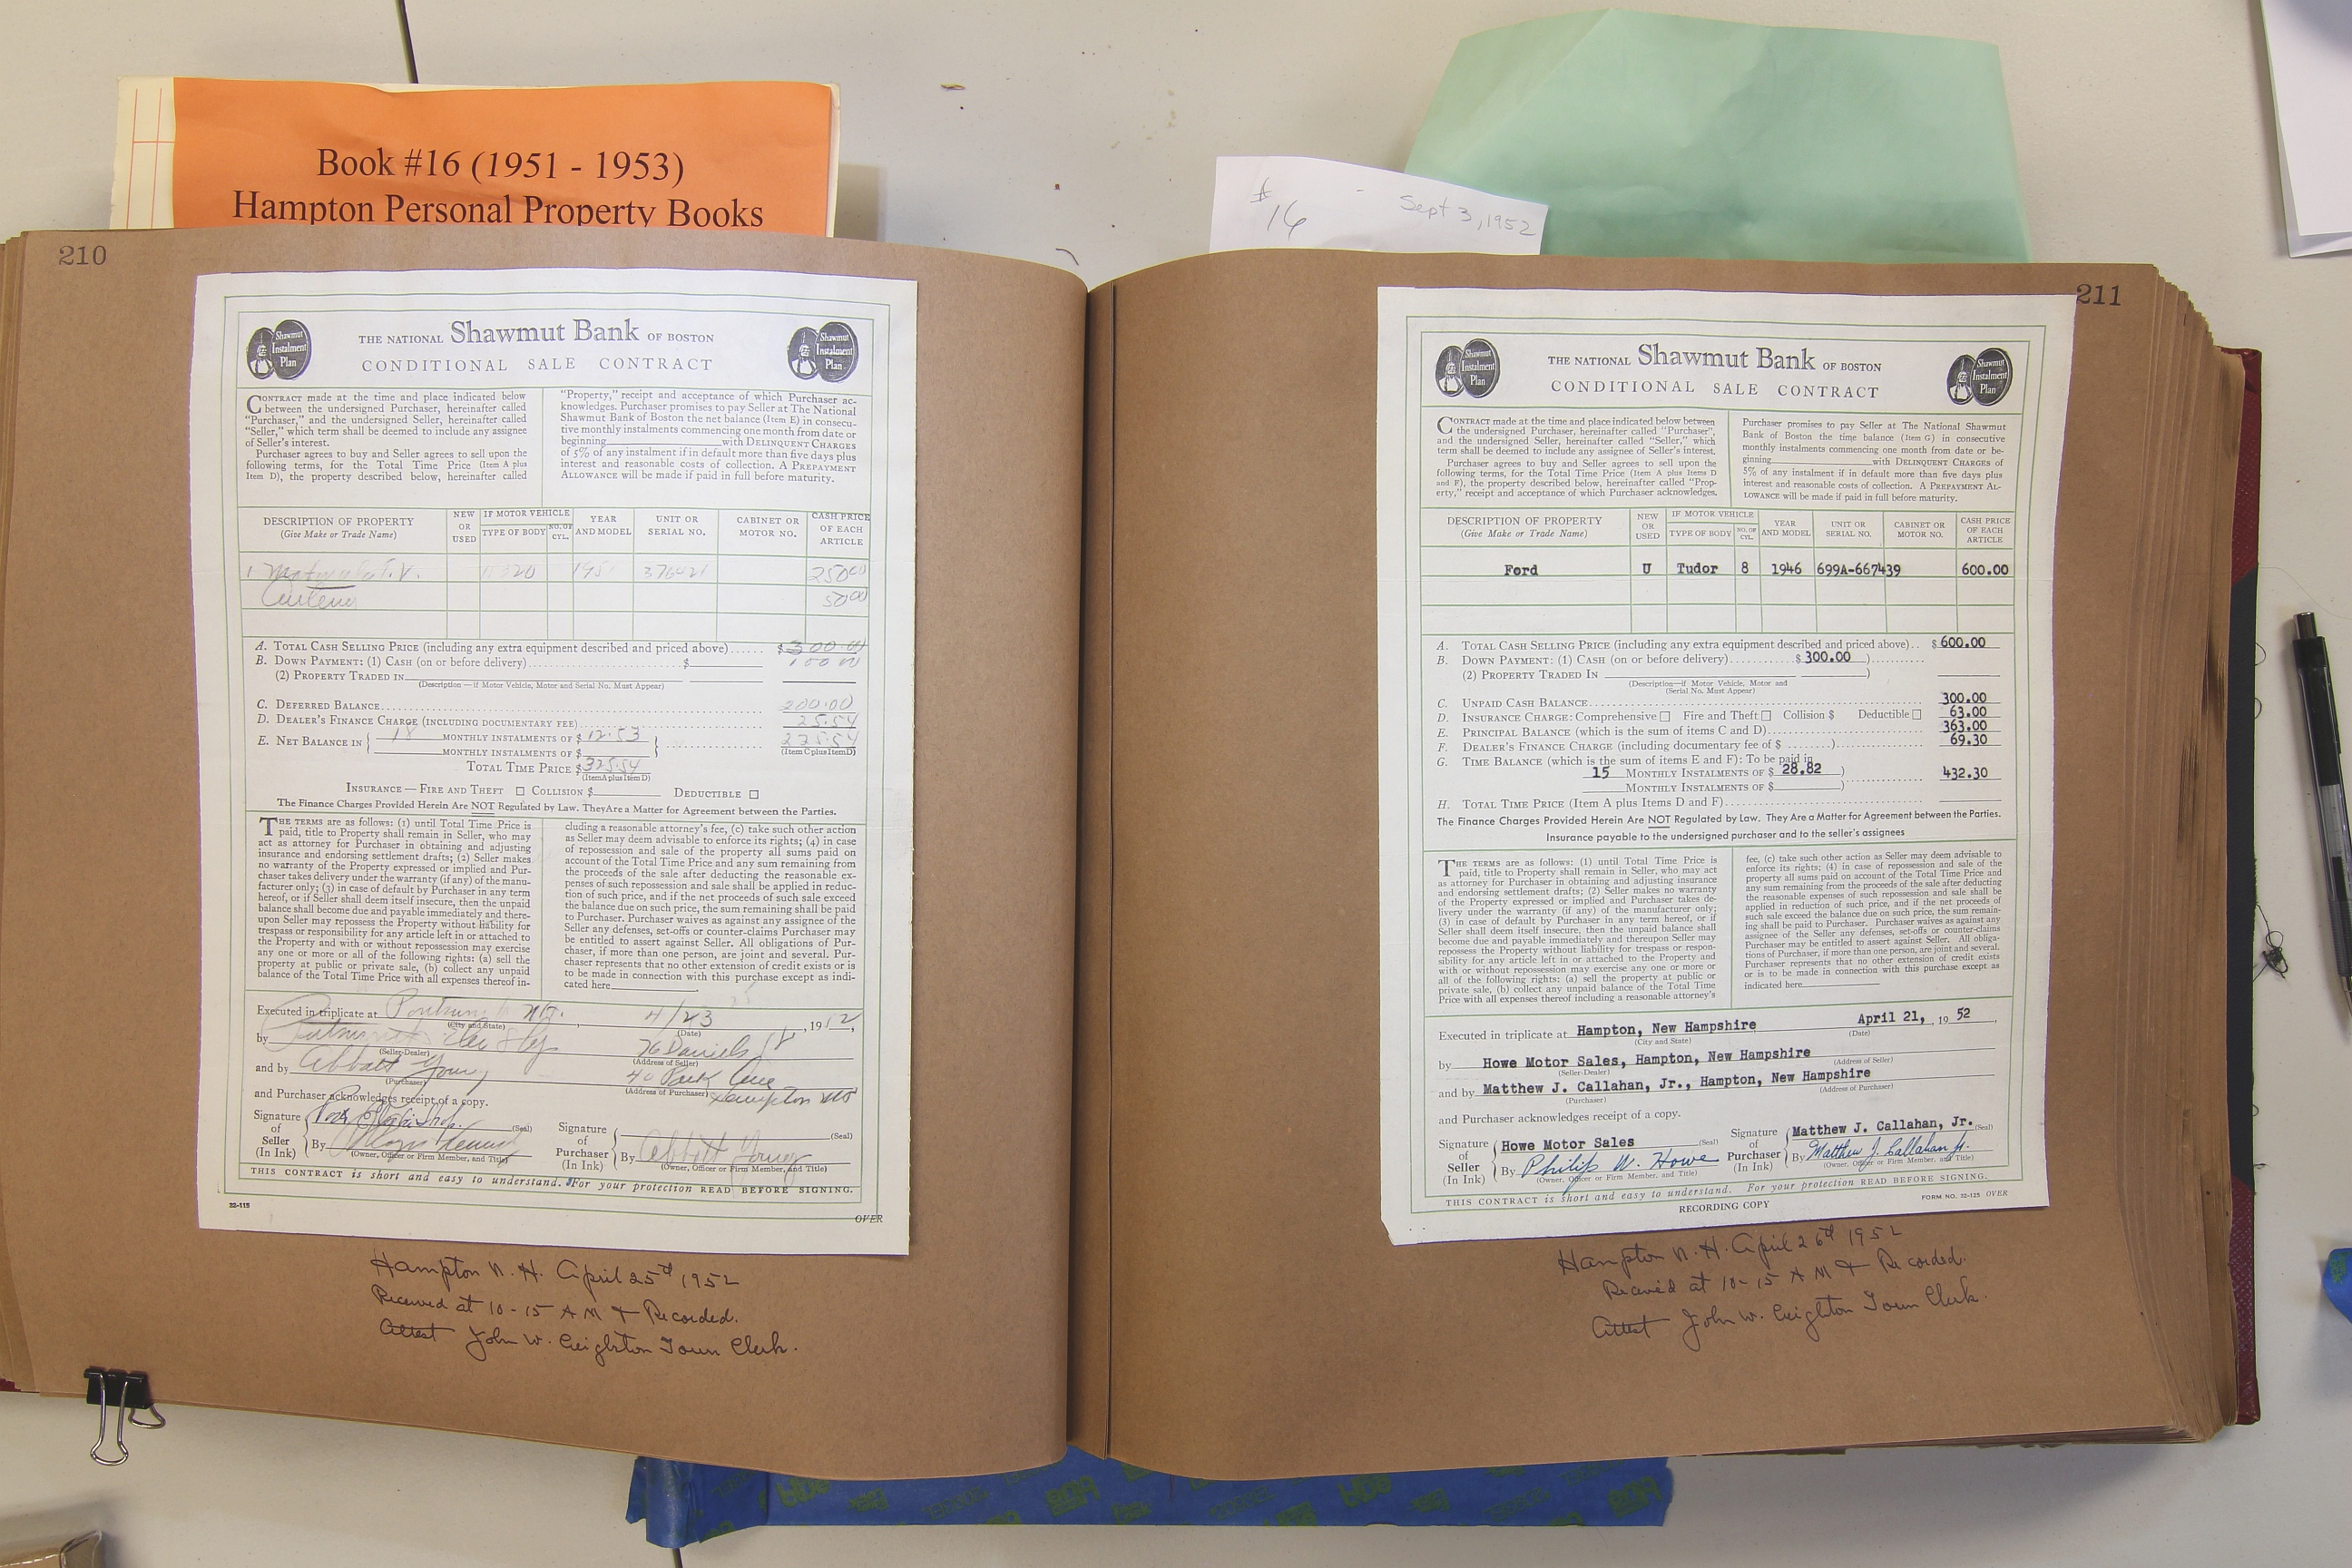 Book #16 (1951 - 1953)
Hampton Personal Property Books
# 16 - Sept 3, 1952
210
Shawmut Instalment Plan
THE NATIONAL Shawmut Bank OF BOSTON
CONDITIONAL SALE CONTRACT
Shawmut Instalment Plan
CONTRACT made at the time and place indicated below
between the undersigned Purchaser, hereinafter called
"Purchaser," and the undersigned Seller, hereinafter called
"Seller," which term shall be deemed to include any assignee
of Seller's interest.
Purchaser agrees to buy and Seller agrees to sell upon the
following terms, for the Total Time Price (Item A plus
Item D), the property described below, hereinafter called
"Property," receipt and acceptance of which Purchaser ac-
knowledges. Purchaser promises to pay Seller at The National
Shawmut Bank of Boston the net balance (Item E) in consecu-
tive monthly instalments commencing one month from date or
beginning with DELINQUENT CHARGES
of 5% of any instalment if in default more than five days plus
interest and reasonable costs of collection. A PREPAYMENT
ALLOWANCE will be made if paid in full before maturity.
DESCRIPTION OF PROPERTY (Give Make or Trade Name) NEW OR USED IF MOTOR VEHICLE TYPE OF BODY NO. OF CYL. YEAR AND MODEL UNIT OR SERIAL NO. CABINET OR MOTOR NO. CASH PRICE OF EACH ARTICLE
1 T.V. 1951 376421 250.00
50.00
A. TOTAL CASH SELLING PRICE (including any extra equipment described and priced above)...... $300.00
B. DOWN PAYMENT: (1) CASH (on or before delivery) $ 100.00
(2) PROPERTY TRADED IN
(Description—if Motor Vehicle, Motor and Serial No. Must Appear)
C. DEFERRED BALANCE 200.00
D. DEALER'S FINANCE CHARGE (INCLUDING DOCUMENTARY FEE) 25.54
E. NET BALANCE IN 18 MONTHLY INSTALMENTS OF $12.53 225.54
MONTHLY INSTALMENTS OF $ (Item C plus Item D)
TOTAL TIME PRICE $325.54
(Item A plus Item D)
INSURANCE — FIRE AND THEFT ☐ COLLISION $ DEDUCTIBLE ☐
The Finance Charges Provided Herein Are NOT Regulated by Law. They Are a Matter for Agreement between the Parties.
THE TERMS are as follows: (1) until Total Time Price is
paid, title to Property shall remain in Seller, who may
act as attorney for Purchaser in obtaining and adjusting
insurance and endorsing settlement drafts; (2) Seller makes
no warranty of the Property expressed or implied and Pur-
chaser takes delivery under the warranty (if any) of the manu-
facturer only; (3) in case of default by Purchaser in any term
hereof, or if Seller shall deem itself insecure, then the unpaid
balance shall become due and payable immediately and there-
upon Seller may repossess the Property without liability for
trespass or responsibility for any article left in or attached to
the Property and with or without repossession may exercise
any one or more or all of the following rights: (a) sell the
property at public or private sale, (b) collect any unpaid
balance of the Total Time Price with all expenses thereof in-
cluding a reasonable attorney's fee, (c) take such other action
as Seller may deem advisable to enforce its rights; (4) in case
of repossession and sale of the property all sums paid on
account of the Total Time Price and any sum remaining from
the proceeds of the sale after deducting the reasonable ex-
penses of such repossession and sale shall be applied in reduc-
tion of such price, and if the net proceeds of such sale exceed
the balance due on such price, the sum remaining shall be paid
to Purchaser. Purchaser waives as against any assignee of the
Seller any defenses, set-offs or counter-claims Purchaser may
be entitled to assert against Seller. All obligations of Pur-
chaser, if more than one person, are joint and several. Pur-
chaser represents that no other extension of credit exists or is
to be made in connection with this purchase except as indi-
cated here
Executed in triplicate at 4/23, 1952,
(City and State) (Date)
by 76 Daniels St
(Seller-Dealer) (Address of Seller)
and by Abbott Young 40 Park Ave
(Purchaser) (Address of Purchaser) Hampton NH
and Purchaser acknowledges receipt of a copy.
Signature of Seller (In Ink) (Seal)
By (Owner, Officer or Firm Member, and Title)
Signature of Purchaser (In Ink) (Seal)
By Abbott Young (Owner, Officer or Firm Member, and Title)
THIS CONTRACT is short and easy to understand. For your protection READ BEFORE SIGNING.
32-115
OVER
Hampton N. H. April 25th 1952
Received at 10-15 AM & Recorded.
Attest John W. Creighton Town Clerk.
211
Shawmut Instalment Plan
THE NATIONAL Shawmut Bank OF BOSTON
CONDITIONAL SALE CONTRACT
Shawmut Instalment Plan
CONTRACT made at the time and place indicated below between
the undersigned Purchaser, hereinafter called "Purchaser",
and the undersigned Seller, hereinafter called "Seller," which
term shall be deemed to include any assignee of Seller's interest.
Purchaser agrees to buy and Seller agrees to sell upon the
following terms, for the Total Time Price (Item A plus Items D
and F), the property described below, hereinafter called "Prop-
erty," receipt and acceptance of which Purchaser acknowledges.
Purchaser promises to pay Seller at The National Shawmut
Bank of Boston the time balance (Item G) in consecutive
monthly instalments commencing one month from date or be-
ginning with DELINQUENT CHARGES of
5% of any instalment if in default more than five days plus
interest and reasonable costs of collection. A PREPAYMENT AL-
LOWANCE will be made if paid in full before maturity.
DESCRIPTION OF PROPERTY (Give Make or Trade Name) NEW OR USED IF MOTOR VEHICLE TYPE OF BODY NO. OF CYL. YEAR AND MODEL UNIT OR SERIAL NO. CABINET OR MOTOR NO. CASH PRICE OF EACH ARTICLE
Ford U Tudor 8 1946 699A-667439 600.00
A. TOTAL CASH SELLING PRICE (including any extra equipment described and priced above).. $600.00
B. DOWN PAYMENT: (1) CASH (on or before delivery) $300.00 )
(2) PROPERTY TRADED IN )
(Description—if Motor Vehicle, Motor and Serial No. Must Appear)
C. UNPAID CASH BALANCE 300.00
D. INSURANCE CHARGE: Comprehensive ☐ Fire and Theft ☐ Collision $ Deductible ☐ 63.00
E. PRINCIPAL BALANCE (which is the sum of items C and D) 363.00
F. DEALER'S FINANCE CHARGE (including documentary fee of $ ) 69.30
G. TIME BALANCE (which is the sum of items E and F): To be paid in
15 MONTHLY INSTALMENTS OF $ 28.82 ) 432.30
MONTHLY INSTALMENTS OF $ )
H. TOTAL TIME PRICE (Item A plus Items D and F)
The Finance Charges Provided Herein Are NOT Regulated by Law. They Are a Matter for Agreement between the Parties.
Insurance payable to the undersigned purchaser and to the seller's assignees
THE TERMS are as follows: (1) until Total Time Price is
paid, title to Property shall remain in Seller, who may act
as attorney for Purchaser in obtaining and adjusting insurance
and endorsing settlement drafts; (2) Seller makes no warranty
of the Property expressed or implied and Purchaser takes de-
livery under the warranty (if any) of the manufacturer only;
(3) in case of default by Purchaser in any term hereof, or if
Seller shall deem itself insecure, then the unpaid balance shall
become due and payable immediately and thereupon Seller may
repossess the Property without liability for trespass or respon-
sibility for any article left in or attached to the Property and
with or without repossession may exercise any one or more or
all of the following rights: (a) sell the property at public or
private sale, (b) collect any unpaid balance of the Total Time
Price with all expenses thereof including a reasonable attorney's
fee, (c) take such other action as Seller may deem advisable to
enforce its rights; (4) in case of repossession and sale of the
property all sums paid on account of the Total Time Price and
any sum remaining from the proceeds of the sale after deducting
the reasonable expenses of such repossession and sale shall be
applied in reduction of such price, and if the net proceeds of
such sale exceed the balance due on such price, the sum remain-
ing shall be paid to Purchaser. Purchaser waives as against any
assignee of the Seller any defenses, set-offs or counter-claims
Purchaser may be entitled to assert against Seller. All obliga-
tions of Purchaser, if more than one person, are joint and several.
Purchaser represents that no other extension of credit exists
or is to be made in connection with this purchase except as
indicated here
Executed in triplicate at Hampton, New Hampshire April 21, , 19 52 ,
(City and State) (Date)
by Howe Motor Sales, Hampton, New Hampshire
(Seller-Dealer) (Address of Seller)
and by Matthew J. Callahan, Jr., Hampton, New Hampshire
(Purchaser) (Address of Purchaser)
and Purchaser acknowledges receipt of a copy.
Signature of Seller (In Ink) Howe Motor Sales (Seal)
By Philip W. Howe (Owner, Officer or Firm Member, and Title)
Signature of Purchaser (In Ink) Matthew J. Callahan, Jr. (Seal)
By Matthew J. Callahan Jr. (Owner, Officer or Firm Member, and Title)
THIS CONTRACT is short and easy to understand. For your protection READ BEFORE SIGNING.
RECORDING COPY
FORM NO. 32-125 OVER
Hampton N. H. April 26th 1952
Received at 10-15 AM & Recorded.
Attest John W. Creighton Town Clerk.